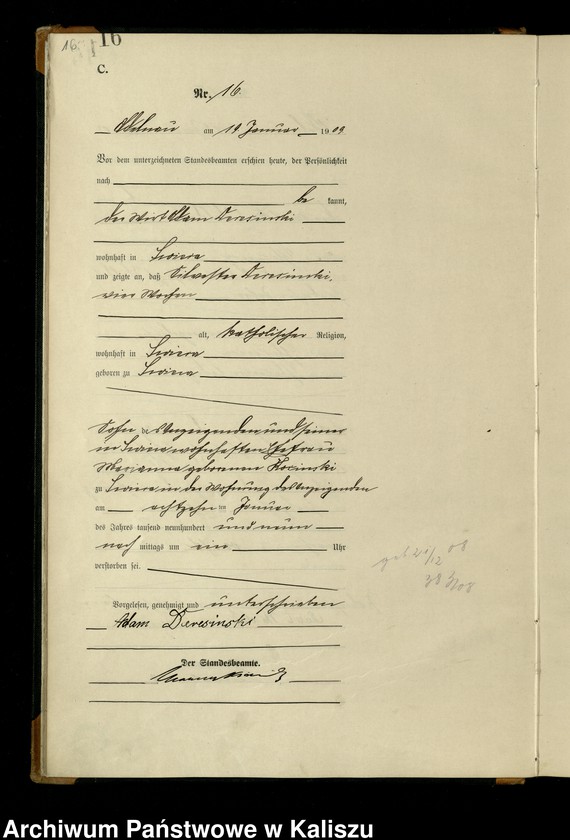 16. 16
C.
Nr. 16.
Adelnau am 19 Januar 1909
Vor dem unterzeichneten Standesbeamten erschien heute, der Persönlichkeit
nach
be kannt,
der Wirt Adam Deresinski
wohnhaft in
und zeigte an, daß Silvester Deresinski,
vier Wochen
alt, katholischer Religion,
wohnhaft in
geboren zu
Sohn des Anzeigenden und seiner
in wohnhaften Ehefrau
Marianna geborenen Kocinski
zu in der Wohnung des Anzeigenden
am achtzehn ten Januar
des Jahres tausend neunhundert und neun
nach mittags um ein Uhr
verstorben sei.
Vorgelesen, genehmigt und unterschrieben
Adam Deresinski
Der Standesbeamte.
Archiwum Państwowe w Kaliszu